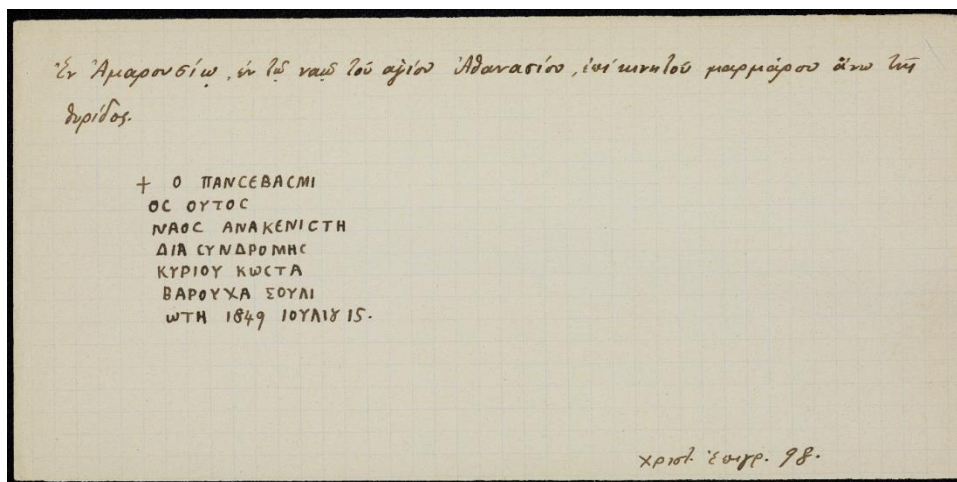 Ἐν Ἀμαρουσίῳ, ἐν τῷ ναῷ τοῦ ἁγίου Ἀθανασίου, ἐπὶ κινητοῦ μαρμάρου ἄνω τῆς
θυρίδος.
+ Ο ΠΑΝCΕΒΑCΜΙ
ΟC ΟΥΤΟC
ΝΑΟC ΑΝΑΚΕΝΙCΤΗ
ΔΙΑ CΥΝΔΡΟΜΗC
ΚΥΡΙΟΥ ΚωCΤΑ
ΒΑΡΟΥΧΑ ΣΟΥΛΙ
ωΤΗ 1849 ΙΟΥΛΙȣ 15.
Χριστ. Ἐπιγρ. 98.